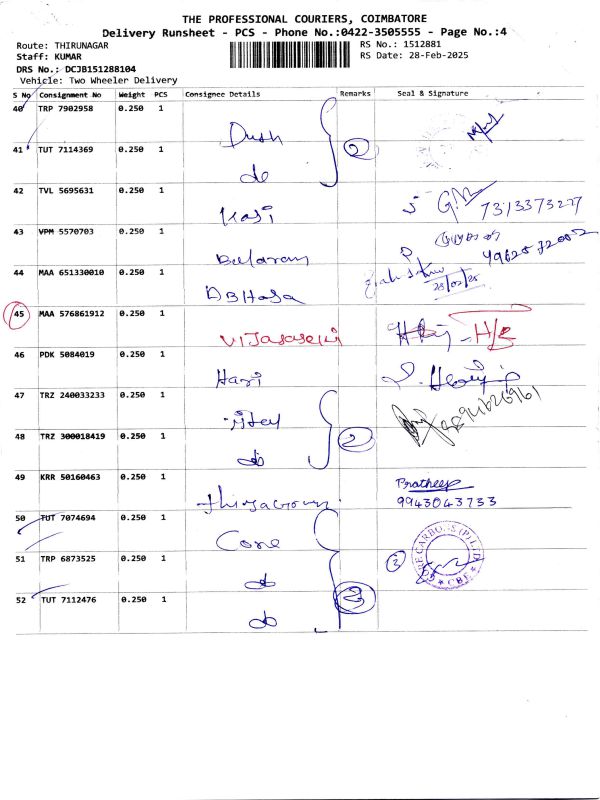 THE PROFESSIONAL COURIERS, COIMBATORE
Delivery Runsheet - PCS - Phone No.:0422-3505555 - Page No.:4
Route: THIRUNAGAR
RS No.: 1512881
Staff: KUMAR
RS Date: 28-Feb-2025
DRS No.: DCJB151288104
Vehicle: Two Wheeler Delivery
S No Consignment No Weight PCS Consignee Details Remarks Seal & Signature
40 TRP 7902958 0.250 1 Dush
41 TUT 7114369 0.250 1 do 2
42 TVL 5695631 0.250 1 Kasi 7313373277
43 VPM 5570703 0.250 1 Balaram
44 MAA 651330010 0.250 1 28/02/25
45 MAA 576861912 0.250 1
46 PDK 5084019 0.250 1 Hari
47 TRZ 240033233 0.250 1
48 TRZ 300018419 0.250 1 do 2
49 KRR 50160463 0.250 1 Pratheep
9943043733
50 TUT 7074694 0.250 1 Core
51 TRP 6873525 0.250 1 do 3
52 TUT 7112476 0.250 1 do 3
CORE CARBONS (P) LTD CBE